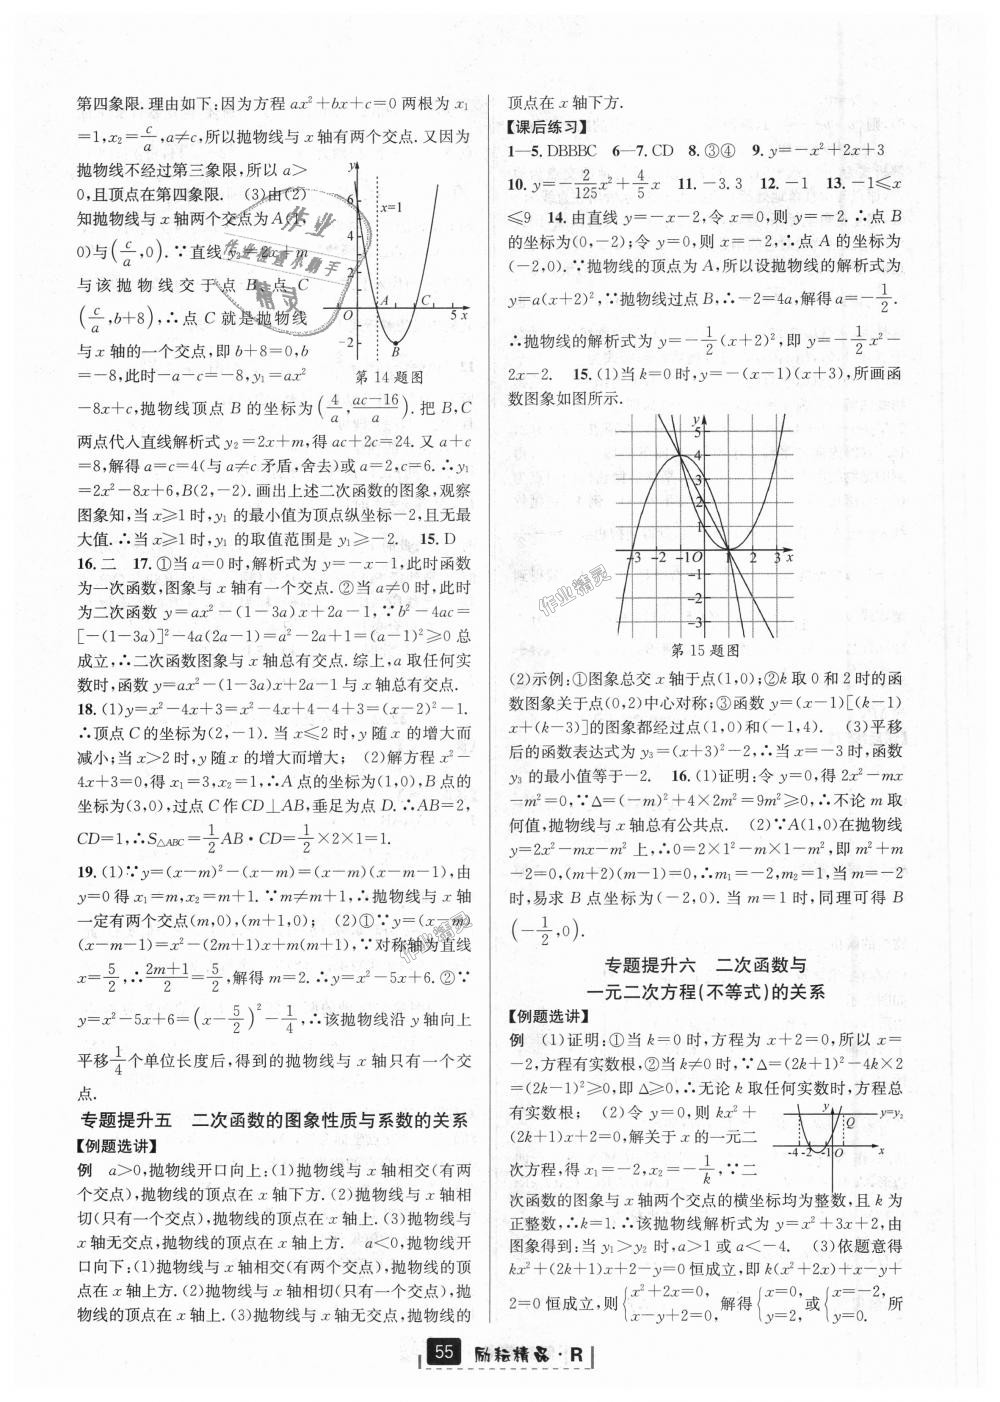 第四象限. 理由如下:因为方程 ax²+bx+c=0 两根为 x₁
=1,x₂=c/a,a≠c,所以抛物线与 x 轴有两个交点. 又因为
抛物线不经过第三象限,所以 a>
0,且顶点在第四象限. (3)由(2)
知抛物线与 x 轴两个交点为 A(1,
0)与(c/a,0). ∵直线 y₂=2x+m
与该抛物线交于点 B、点 C
(c/a,b+8),∴点 C 就是抛物线
与 x 轴的一个交点,即 b+8=0,b
=-8,此时-a-c=-8,y₁=ax²
第 14 题图
-8x+c,抛物线顶点 B 的坐标为(4/a,(ac-16)/a). 把 B,C
两点代入直线解析式 y₂=2x+m,得 ac+2c=24. 又 a+c
=8,解得 a=c=4(与 a≠c 矛盾,舍去)或 a=2,c=6. ∴y₁
=2x²-8x+6,B(2,-2). 画出上述二次函数的图象,观察
图象知,当 x≥1 时,y₁ 的最小值为顶点纵坐标-2,且无最
大值. ∴当 x≥1 时,y₁ 的取值范围是 y₁≥-2. 15. D
16. 二 17. ①当 a=0 时,解析式为 y=-x-1,此时函数
为一次函数,图象与 x 轴有一个交点. ②当 a≠0 时,此时
为二次函数 y=ax²-(1-3a)x+2a-1,∵b²-4ac=
[-(1-3a)]²-4a(2a-1)=a²-2a+1=(a-1)²≥0 总
成立,∴二次函数图象与 x 轴总有交点. 综上,a 取任何实
数时,函数 y=ax²-(1-3a)x+2a-1 与 x 轴总有交点.
18. (1)y=x²-4x+3=x²-4x+4-4+3=(x-2)²-1.
∴顶点 C 的坐标为(2,-1). 当 x≤2 时,y 随 x 的增大而
减小;当 x>2 时,y 随 x 的增大而增大; (2)解方程 x²-
4x+3=0,得 x₁=3,x₂=1,∴A 点的坐标为(1,0),B 点的
坐标为(3,0),过点 C 作 CD⊥AB,垂足为点 D. ∴AB=2,
CD=1,∴S△ABC=1/2AB·CD=1/2×2×1=1.
19. (1)∵y=(x-m)²-(x-m)=(x-m)(x-m-1),由
y=0 得 x₁=m,x₂=m+1. ∵m≠m+1,∴抛物线与 x 轴
一定有两个交点(m,0),(m+1,0); (2)①∵y=(x-m)
(x-m-1)=x²-(2m+1)x+m(m+1),∵对称轴为直线
x=5/2,∴(2m+1)/2=5/2,解得 m=2. ∴y=x²-5x+6. ②∵
y=x²-5x+6=(x-5/2)²-1/4,∴该抛物线沿 y 轴向上
平移1/4个单位长度后,得到的抛物线与 x 轴只有一个交
点.
专题提升五 二次函数的图象性质与系数的关系
【例题选讲】
例 a>0,抛物线开口向上:(1)抛物线与 x 轴相交(有两
个交点),抛物线的顶点在 x 轴下方. (2)抛物线与 x 轴相
切(只有一个交点),抛物线的顶点在 x 轴上. (3)抛物线与
x 轴无交点,抛物线的顶点在 x 轴上方. a<0,抛物线开
口向下:(1)抛物线与 x 轴相交(有两个交点),抛物线的顶
点在 x 轴上方. (2)抛物线与 x 轴相切(只有一个交点),抛
物线的顶点在 x 轴上. (3)抛物线与 x 轴无交点,抛物线的
顶点在 x 轴下方.
【课后练习】
1—5. DBBBC 6—7. CD 8. ③④ 9. y=-x²+2x+3
10. y=-2/125x²+4/5x 11. -3.3 12. -1 13. -1≤x
≤9 14. 由直线 y=-x-2,令 x=0,则 y=-2. ∴点 B
的坐标为(0,-2);令 y=0,则 x=-2,∴点 A 的坐标为
(-2,0). ∵抛物线的顶点为 A,所以设抛物线的解析式为
y=a(x+2)²,∵抛物线过点 B,∴-2=4a,解得 a=-1/2.
∴抛物线的解析式为 y=-1/2(x+2)²,即 y=-1/2x²-
2x-2. 15. (1)当 k=0 时,y=-(x-1)(x+3),所画函
数图象如图所示.
第 15 题图
(2)示例:①图象总交 x 轴于点(1,0);②k 取 0 和 2 时的函
数图象关于点(0,2)中心对称;③函数 y=(x-1)[(k-1)
x+(k-3)]的图象都经过点(1,0)和(-1,4). (3)平移
后的函数表达式为 y₃=(x+3)²-2,∴当 x=-3 时,函数
y₃ 的最小值等于-2. 16. (1)证明:令 y=0,得 2x²-mx
-m²=0,∵Δ=(-m)²+4×2m²=9m²≥0,∴不论 m 取
何值,抛物线与 x 轴总有公共点. (2)∵A(1,0)在抛物线
y=2x²-mx-m² 上,∴0=2×1²-m×1-m²,即 m²+m
-2=0,(m+2)(m-1)=0,∴m₁=-2,m₂=1,当 m=-2
时,易求 B 点坐标为(-2,0). 当 m=1 时,同理可得 B
(-1/2,0).
专题提升六 二次函数与
一元二次方程(不等式)的关系
【例题选讲】
例 (1)证明:①当 k=0 时,方程为 x+2=0,所以 x=
-2,方程有实数根,②当 k≠0 时,∵Δ=(2k+1)²-4k×2
=(2k-1)²≥0,即 Δ≥0,∴无论 k 取任何实数时,方程总
有实数根; (2)令 y=0,则 kx²+
(2k+1)x+2=0,解关于 x 的一元二
次方程,得 x₁=-2,x₂=-1/k,∵二
次函数的图象与 x 轴两个交点的横坐标均为整数,且 k 为
正整数,∴k=1. ∴该抛物线解析式为 y=x²+3x+2,由
图象得到:当 y₁>y₂ 时,a>1 或 a<-4. (3)依题意得
kx²+(2k+1)x+2-y=0 恒成立,即 k(x²+2x)+x-y+
2=0 恒成立,则{x²+2x=0, x-y+2=0, 解得{x=0, y=2, 或{x=-2, y=0. 所
55 励耘精品·R